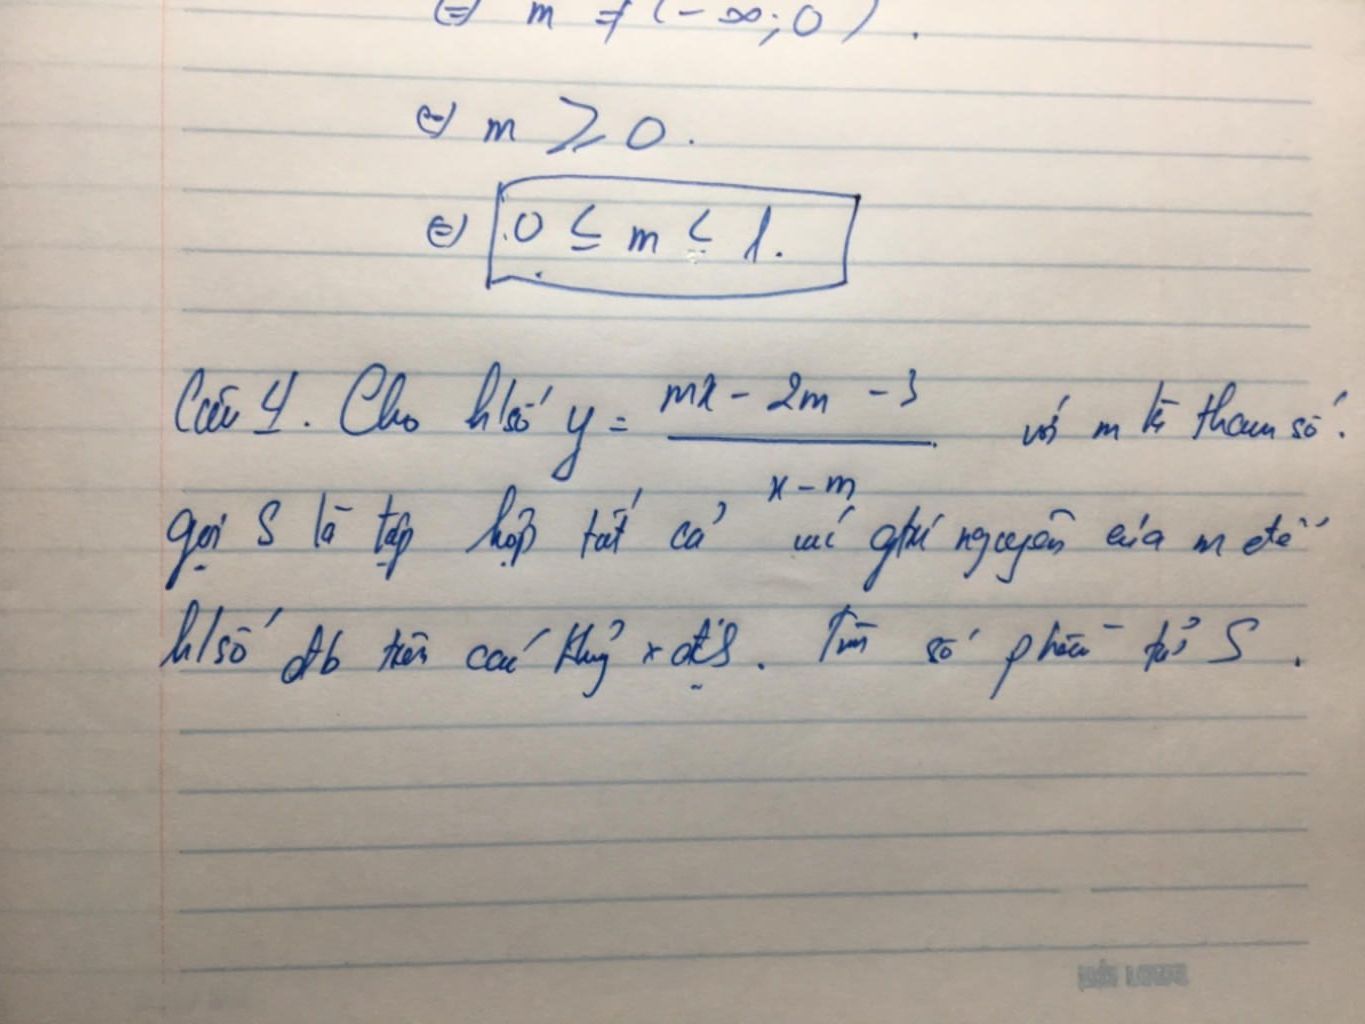 ⇔ m ∉ (-∞; 0).
⇔ m ≥ 0.
⇔ 0 ≤ m ≤ 1.
Câu 4. Cho h/số y = (mx - 2m - 3)/(x - m) với m là tham số.
gọi S là tập hợp tất cả các gtrị nguyên của m để
h/số đb trên các khg xđ. Tìm số phần tử S.